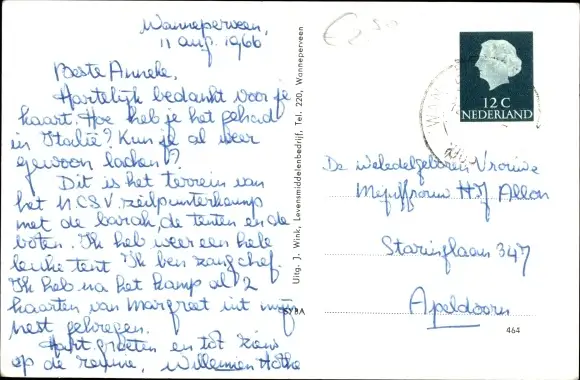 Wanneperveen,
11 aug. 1966
Beste Anneke,
Hartelijk bedankt voor je
kaart. Hoe heb je het gehad
in Italië? Kun je al weer
gewoon lachen?
Dit is het terrein van
het NCSV zeilpunterkamp
met de barak, de tenten en de
boten. Ik heb weer een hele
leuke tent. Ik ben zangchef.
Ik heb na het kamp al 2
kaarten van Margreet uit
nest gekregen.
Hart. groeten en tot ziens
op de reünie, Willemien
Uitg. J. Wink, Levensmiddelenbedrijf, Tel. 220, Wanneperveen
SYBA
12 C
NEDERLAND
De weledelgeboren Vrouwe
Mejuffrouw H J Allon
Staringlaan 347
Apeldoorn
464